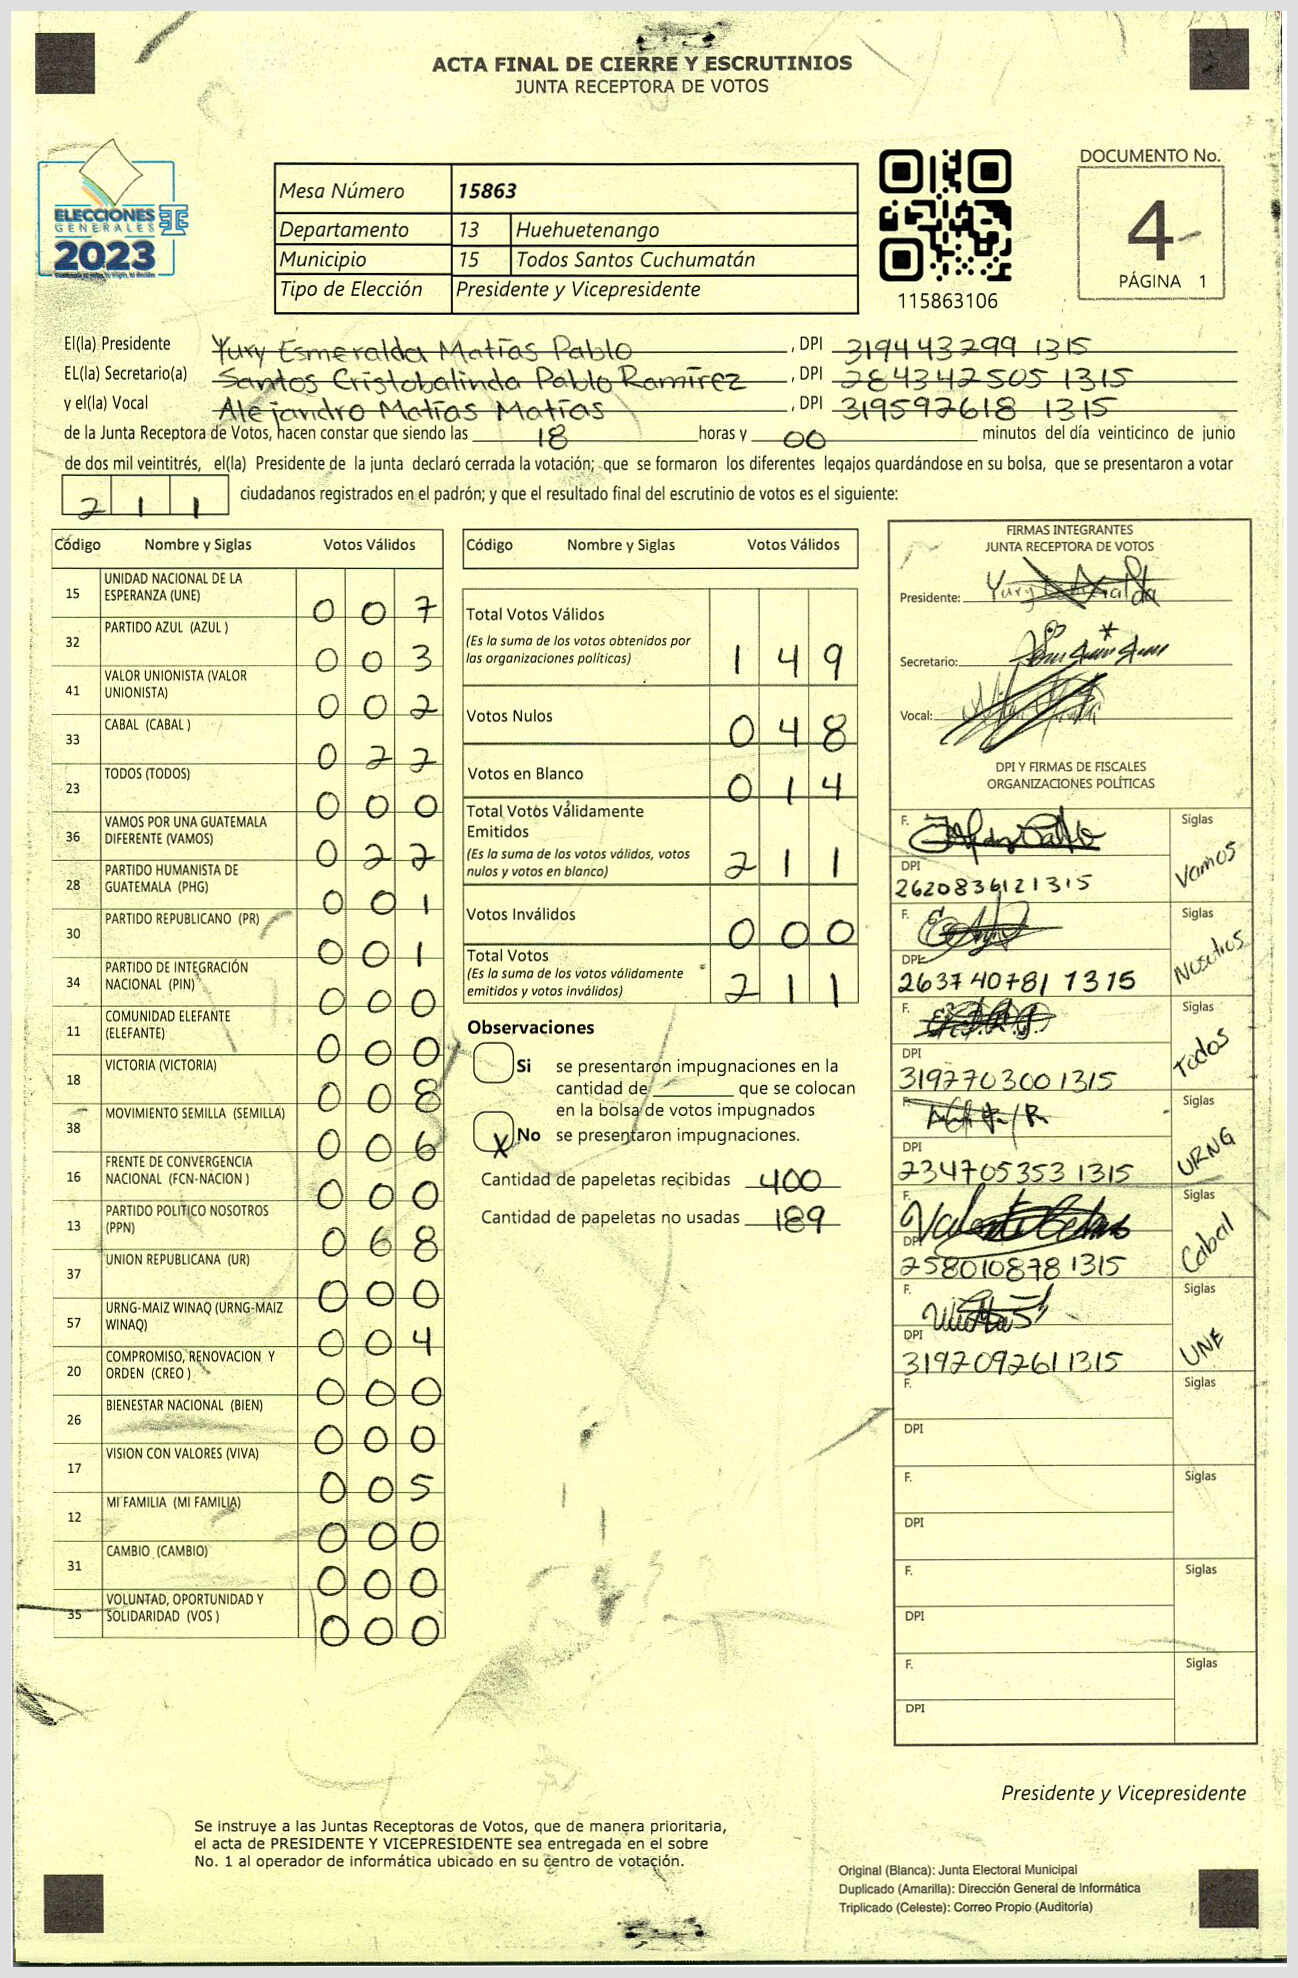 ACTA FINAL DE CIERRE Y ESCRUTINIOS
JUNTA RECEPTORA DE VOTOS
ELECCIONES
GENERALES
2023
Mesa Número 15863
Departamento 13 Huehuetenango
Municipio 15 Todos Santos Cuchumatán
Tipo de Elección Presidente y Vicepresidente
115863106
DOCUMENTO No.
4
PÁGINA 1
El(la) Presidente Yury Esmeralda Matías Pablo , DPI 319443299 1315
EL(la) Secretario(a) Santos Cristobalinda Pablo Ramírez , DPI 284342505 1315
y el(la) Vocal Alejandro Matías Matías , DPI 319597618 1315
de la Junta Receptora de Votos, hacen constar que siendo las 18 horas y 00 minutos del día veinticinco de junio
de dos mil veintitrés, el(la) Presidente de la junta declaró cerrada la votación; que se formaron los diferentes legajos guardándose en su bolsa, que se presentaron a votar
211 ciudadanos registrados en el padrón; y que el resultado final del escrutinio de votos es el siguiente:
Código Nombre y Siglas Votos Válidos
15 UNIDAD NACIONAL DE LA ESPERANZA (UNE) 0 0 7
32 PARTIDO AZUL (AZUL ) 0 0 3
41 VALOR UNIONISTA (VALOR UNIONISTA) 0 0 2
33 CABAL (CABAL ) 0 2 2
23 TODOS (TODOS) 0 0 0
36 VAMOS POR UNA GUATEMALA DIFERENTE (VAMOS) 0 2 2
28 PARTIDO HUMANISTA DE GUATEMALA (PHG) 0 0 1
30 PARTIDO REPUBLICANO (PR) 0 0 1
34 PARTIDO DE INTEGRACIÓN NACIONAL (PIN) 0 0 0
11 COMUNIDAD ELEFANTE (ELEFANTE) 0 0 0
18 VICTORIA (VICTORIA) 0 0 8
38 MOVIMIENTO SEMILLA (SEMILLA) 0 0 6
16 FRENTE DE CONVERGENCIA NACIONAL (FCN-NACION ) 0 0 0
13 PARTIDO POLITICO NOSOTROS (PPN) 0 6 8
37 UNION REPUBLICANA (UR) 0 0 0
57 URNG-MAIZ WINAQ (URNG-MAIZ WINAQ) 0 0 4
20 COMPROMISO, RENOVACION Y ORDEN (CREO ) 0 0 0
26 BIENESTAR NACIONAL (BIEN) 0 0 0
17 VISION CON VALORES (VIVA) 0 0 5
12 MI FAMILIA (MI FAMILIA) 0 0 0
31 CAMBIO (CAMBIO) 0 0 0
35 VOLUNTAD, OPORTUNIDAD Y SOLIDARIDAD (VOS ) 0 0 0
Código Nombre y Siglas Votos Válidos
Total Votos Válidos
(Es la suma de los votos obtenidos por
las organizaciones políticas) 1 4 9
Votos Nulos 0 4 8
Votos en Blanco 0 1 4
Total Votos Válidamente
Emitidos
(Es la suma de los votos válidos, votos
nulos y votos en blanco) 2 1 1
Votos Inválidos 0 0 0
Total Votos
(Es la suma de los votos válidamente
emitidos y votos inválidos) 2 1 1
Observaciones
Si se presentaron impugnaciones en la
cantidad de ________ que se colocan
en la bolsa de votos impugnados
X No se presentaron impugnaciones.
Cantidad de papeletas recibidas 400
Cantidad de papeletas no usadas 189
FIRMAS INTEGRANTES
JUNTA RECEPTORA DE VOTOS
Presidente:
Secretario:
Vocal:
DPI Y FIRMAS DE FISCALES
ORGANIZACIONES POLÍTICAS
F. Siglas
DPI Vamos
262083612 1315
F. Siglas
DPI Nosotros
263740781 1315
F. Siglas
DPI Todos
319770300 1315
F. Siglas
DPI URNG
234705353 1315
F. Siglas
DPI Cabal
258010878 1315
F. Siglas
DPI UNE
319209261 1315
F. Siglas
DPI
F. Siglas
DPI
F. Siglas
DPI
F. Siglas
DPI
Presidente y Vicepresidente
Se instruye a las Juntas Receptoras de Votos, que de manera prioritaria,
el acta de PRESIDENTE Y VICEPRESIDENTE sea entregada en el sobre
No. 1 al operador de informática ubicado en su centro de votación.
Original (Blanca): Junta Electoral Municipal
Duplicado (Amarilla): Dirección General de Informática
Triplicado (Celeste): Correo Propio (Auditoría)